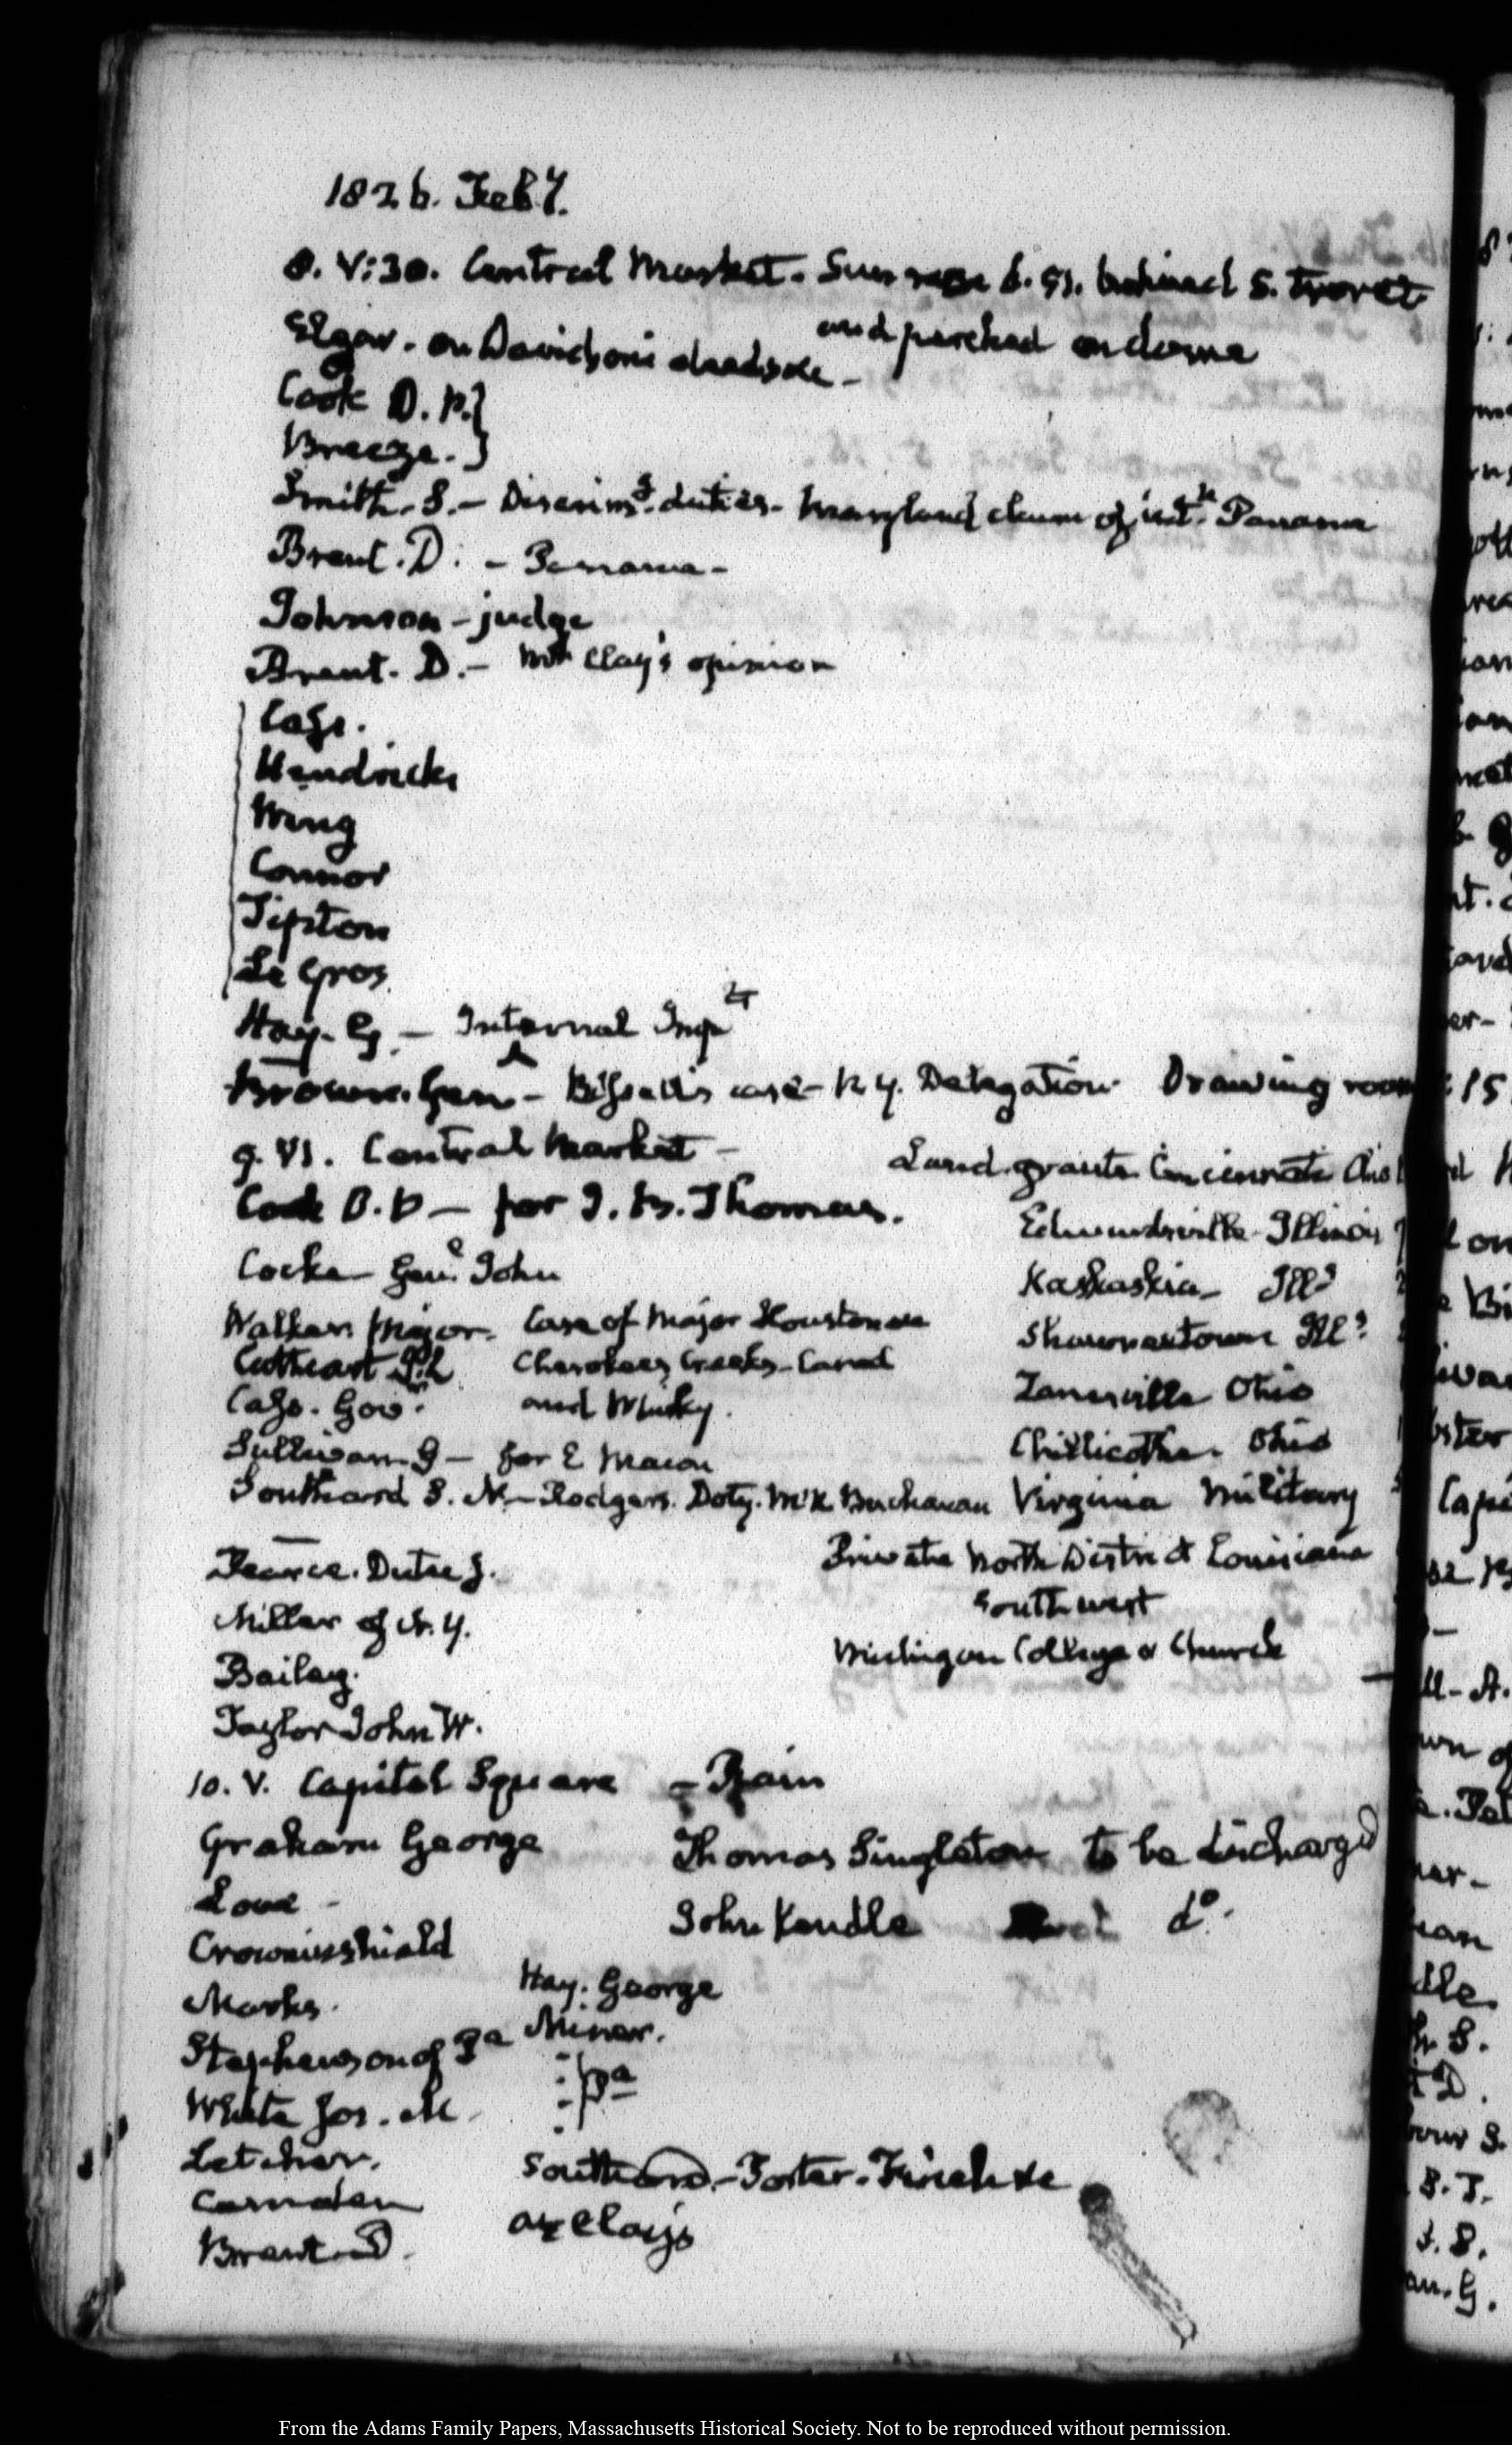 1826. Feby.
8. V:30. Central Market. Sun rose 6.51. behind S. turret
and perched on dome
Elgar. on Davidson's
Cook D. P. }
Breeze. }
Smith. S. — Discrims. duties. Maryland claim of intt. Panama
Brent. D. — Panama —
Johnson — judge
Brent. D. — Mr Clay's opinion
Cass.
Hendricks
Wing
Connor
Tipton
Le Gros
Hay. G. — Internal Impt
Brown. Genl — Bissell's case — N Y. Delegation. Drawing room
9. VI. Central Market — Land. grants Cincinnati Ohio
Cook D. P — for J. B. Thomas. Edwardsville Illinois
Cocke Genl John Kaskaskia — Ills
Walker. Major. Case of Major Houston Shawneetown Ills
Cathcart J. L Cherokees Creeks. Canal Zanesville Ohio
Cass. Govr. and Whisky.
Sullivan. G — for E Macon Chillicothe. Ohio
Southard S. L. — Rodgers. Doty. McK Buchanan Virginia Military
Pearce. Dutee J. Private North District Louisiana
Miller of N. Y. South west
Bailey. Michigan College & Church
Taylor John W.
10. V. Capitol Square — Rain
Graham George Thomas Singleton to be discharged
Lowe — John Kendle do.
Crowninshield
Marks. Hay. George
Stephenson of Pa Miner.
White Jos. M : Pa
Letcher.
Camden Southard. — Foster.
Brent. D. at Clay's